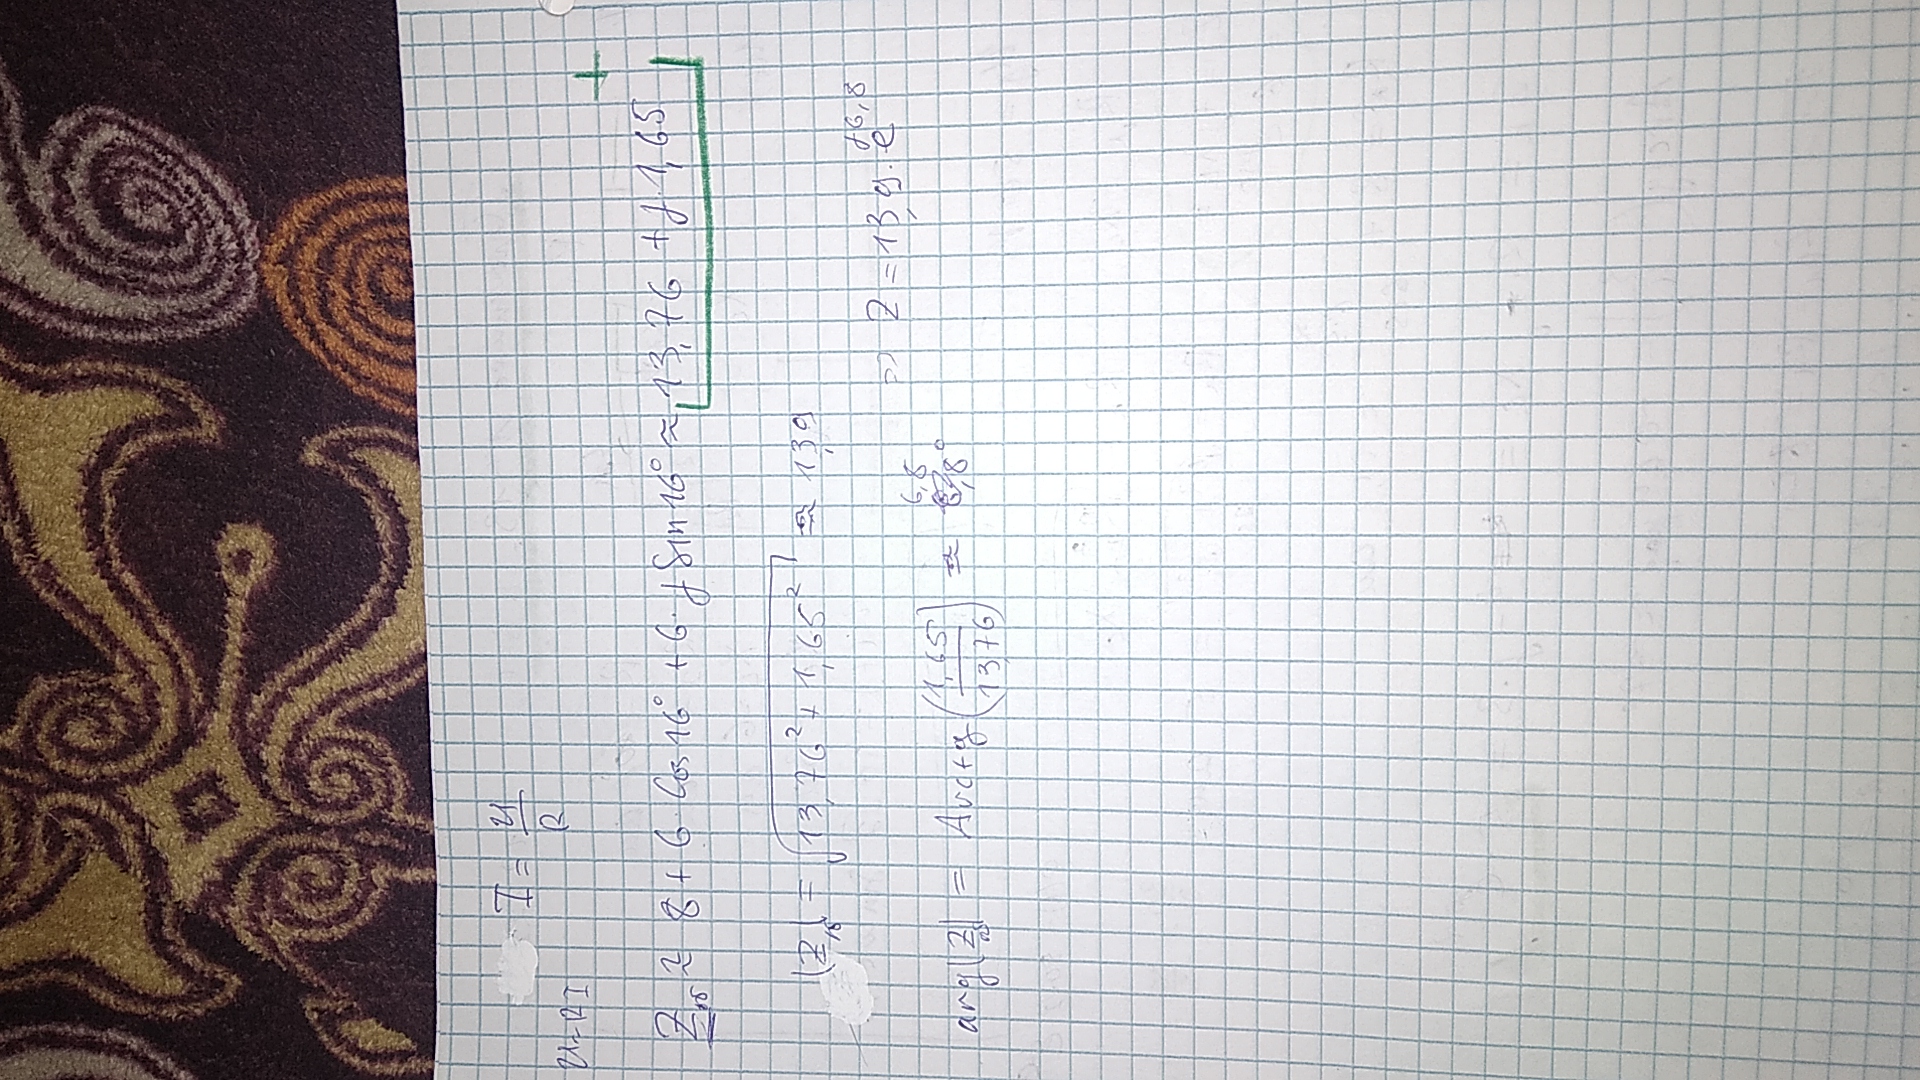 I = U/R
U = RI
Z ≈ 8 + 6 · Cos 16° + 6 · j Sin 16° ≈ 13,76 + j · 1,65
|Z| = √(13,76² + 1,65²) ≈ 13,9
⇒ Z = 13,9 · e^j6,8
6,8
arg|Z| = Arctg (1,65/13,76) ≈ °